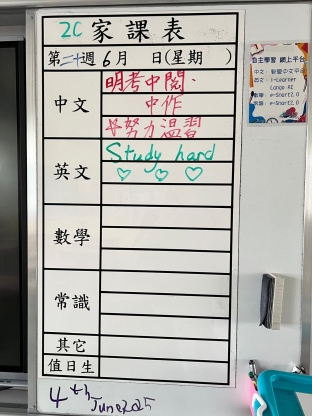 2C 家課表
第二十週 6月 日(星期 )
中文
明考中閱.
中作
努力溫習
英文
Study hard
數學
常識
其它
值日生
4th June 2025
自主學習 網上平台
中文: 智愛中文平台
英文: i-Learner
Lango AI
數學: e-Smart2.0
常識: e-Smart2.0